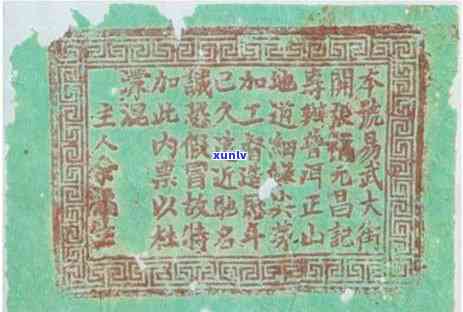 本號易武大街
開張福元昌記
專辦普洱正山
地道細嫩尖
加工督造歷年
已久遠近馳名
誠恐假冒故特
加此內票以杜
混
主人余福生
xunlv